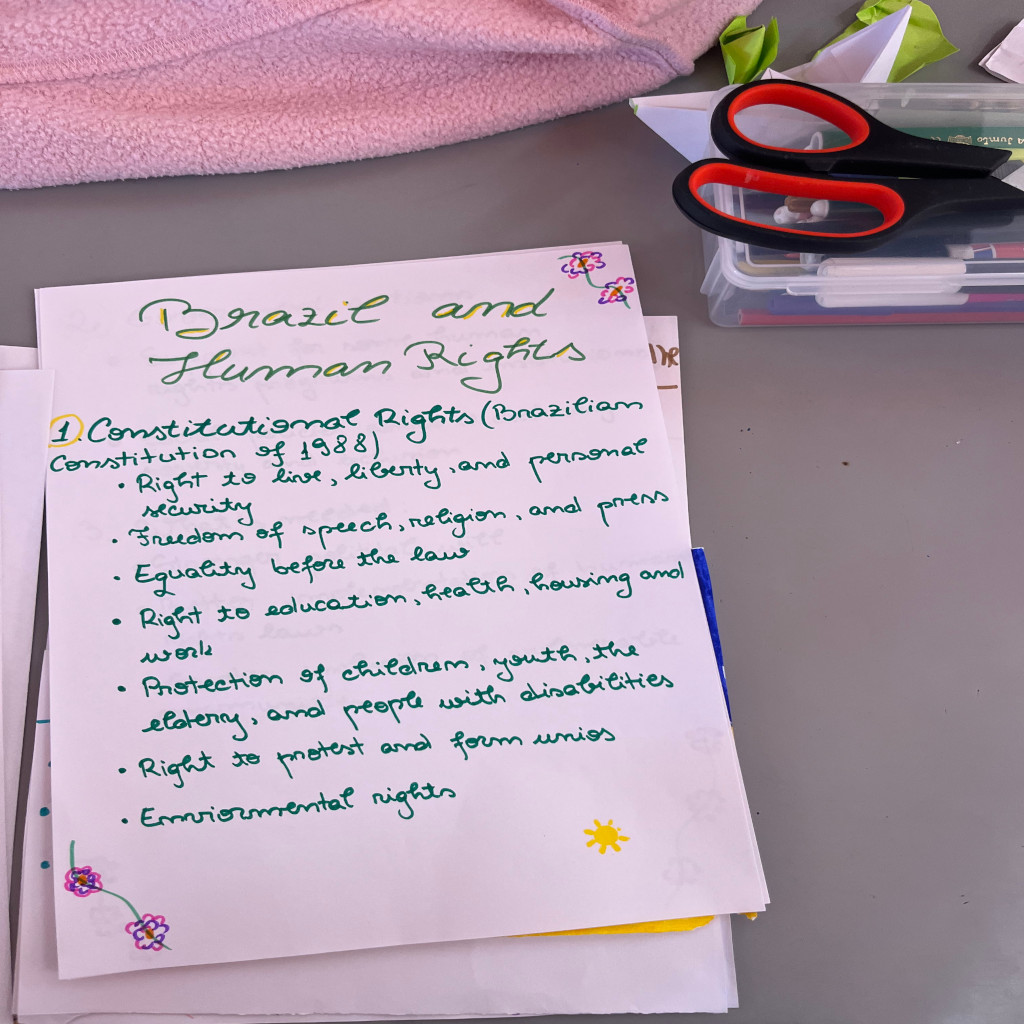 Brazil and
Human Rights
1. Constitutional Rights (Brazilian
Constitution of 1988)
• Right to live, liberty, and personal
security
• Freedom of speech, religion, and press
• Equality before the law
• Right to education, health, housing and
work
• Protection of children, youth, the
eldery, and people with disabilities
• Right to protest and form unios
• Enviormental rights
Jumbo